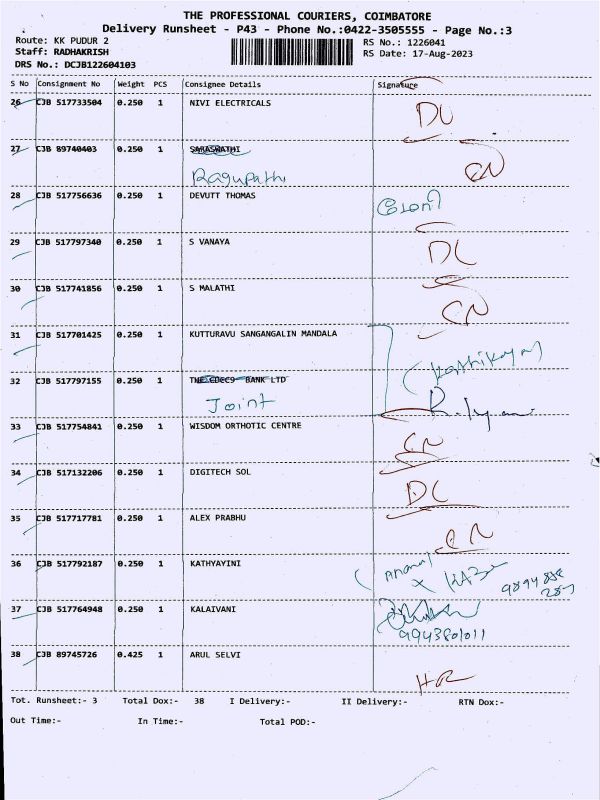 THE PROFESSIONAL COURIERS, COIMBATORE
Delivery Runsheet - P43 - Phone No.:0422-3505555 - Page No.:3
Route: KK PUDUR 2 RS No.: 1226041
Staff: RADHAKRISH RS Date: 17-Aug-2023
DRS No.: DCJB122604103
S No Consignment No Weight PCS Consignee Details Signature
26 CJB 517733504 0.250 1 NIVI ELECTRICALS
DL
27 CJB 89740403 0.250 1 SARASRATHI
Ragupathi CN
28 CJB 517756636 0.250 1 DEVUTT THOMAS
29 CJB 517797340 0.250 1 S VANAYA DL
30 CJB 517741856 0.250 1 S MALATHI
CN
31 CJB 517701425 0.250 1 KUTTURAVU SANGANGALIN MANDALA
32 CJB 517797155 0.250 1 BANK LTD
Joint
33 CJB 517754841 0.250 1 WISDOM ORTHOTIC CENTRE
CN
34 CJB 517132206 0.250 1 DIGITECH SOL
DL
35 CJB 517717781 0.250 1 ALEX PRABHU
CN
36 CJB 517792187 0.250 1 KATHYAYINI
37 CJB 517764948 0.250 1 KALAIVANI
9943801011
38 CJB 89745726 0.425 1 ARUL SELVI
Tot. Runsheet:- 3 Total Dox:- 38 I Delivery:- II Delivery:- RTN Dox:-
Out Time:- In Time:- Total POD:-